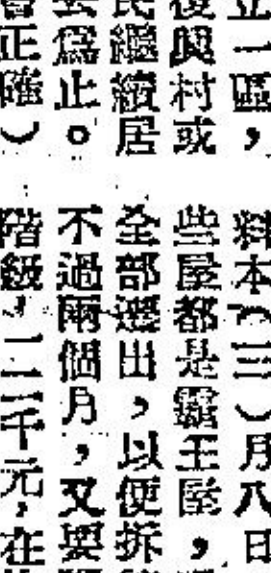 立一區，
復興村或
民繼續居
去為止。
正確）
料本（三）月八日
些屋都是霸王屋，
全部遷出，以便拆
不過兩個月，又要
階級，二三千元，在